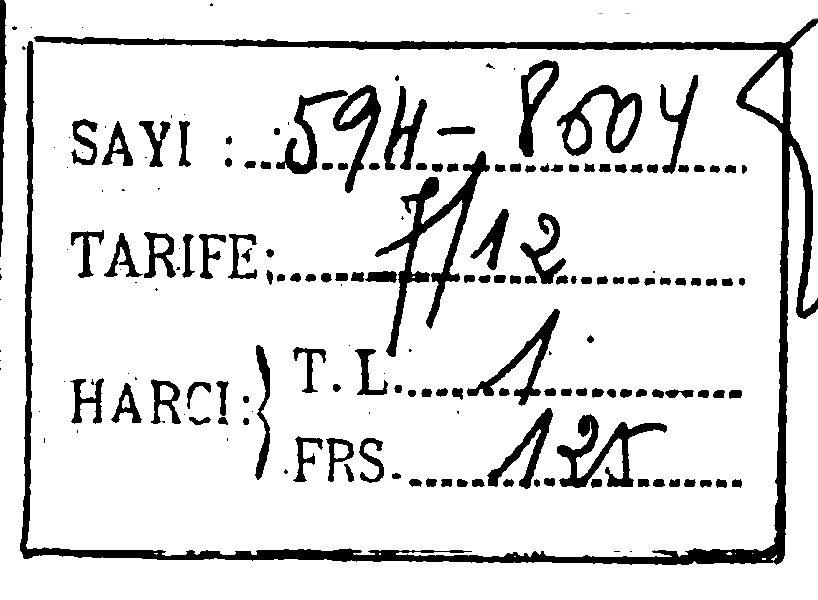 SAYI : 594-8604
TARIFE: 7/12
HARCI: T.L. 1
FRS. 125